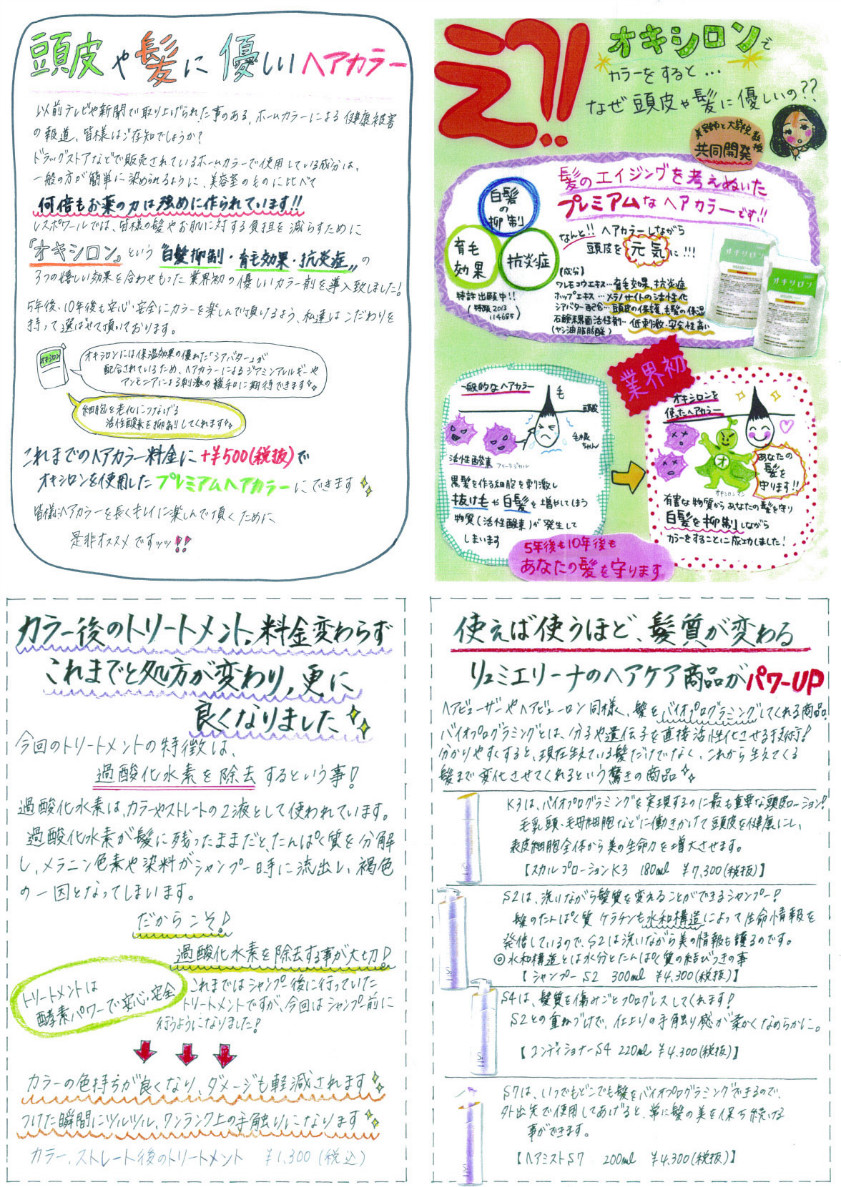 頭皮や髪に優しいヘアカラー
以前テレビや新聞で取り上げられた事のある、ホームカラーによる健康被害
の報道、皆様はご存知でしょうか?
ドラッグストアなどで販売されているホームカラーで使用している成分は、
一般の方が簡単に染められるように、美容室のものに比べて
何倍もお薬の力は強めに作られています!!
レスポワールでは、皆様の髪やお肌に対する負担を減らすために
『オキシロン』という"白髪抑制・育毛効果・抗炎症"の
3つの嬉しい効果を合わせもった業界初の優しいカラー剤を導入致しました!
5年後・10年後も安心・安全にカラーを楽しんで頂けるよう、私達はこだわりを
持って選ばせて頂いております。
オキシロン
オキシロンには保湿効果の優れた「シアバター」が
配合されているため、ヘアカラーによるジアミンアレルギーや
アンモニアによる刺激の緩和に期待できます
細胞を老化につなげる
活性酸素を抑制してくれます
これまでのヘアカラー料金に+¥500(税抜)で
オキシロンを使用したプレミアムヘアカラーにできます
皆様ヘアカラーを長くキレイに楽しんで頂くために、
是非オススメですッッ!!
え?!!
オキシロンで
カラーをすると…
なぜ頭皮や髪に優しいの??
美容師と大学院教授
共同開発
髪のエイジングを考えぬいた
プレミアムなヘアカラーです!!
白髪の抑制
育毛効果
抗炎症
なんと!!ヘアカラーしながら
頭皮を元気に!!!
(成分)
ワレモコウエキス…育毛効果、抗炎症
ホップエキス…メラノサイトの活性化
シアバター配合…頭皮の保護、毛髪の保湿
石鹸系界面活性剤…低刺激・安全性高い
(ヤシ油脂肪酸)
特許出願中!!
(特願2013
114685)
オキシロン
オキシロン
業界初
一般的なヘアカラー
毛
頭皮
毛母ちゃん
活性酸素
黒髪を作る細胞を刺激し
抜け毛や白髪を増やしてしまう
物質(活性酸素)が発生して
しまいます
オキシロンを
使ったヘアカラー
オ
あなたの
髪を
守ります!!
有害な物質からあなたの髪を守り
白髪を抑制しながら
カラーをすることに成功しました!
5年後も10年後も
あなたの髪を守ります
カラー後のトリートメント、料金変わらず
これまでと処方が変わり、更に
良くなりました
今回のトリートメントの特徴は、
過酸化水素を除去するという事!
過酸化水素は、カラーやストレートの2液として使われています。
過酸化水素が髪に残ったままだと、たんぱく質を分解
し、メラニン色素や染料がシャンプー時に流出し、褐色
の一因となってしまいます。
だからこそ♪
過酸化水素を除去する事が大切♪
トリートメントは
酵素パワーで安心・安全
これまではシャンプー後に行っていた
トリートメントですが、今回はシャンプー前に
行うようになりました!
カラーの色持ちが良くなり、ダメージも軽減されます
つけた瞬間にツルツル、ワンランク上の手触りになります
カラー、ストレート後のトリートメント ¥1,300(税込)
使えば使うほど、髪質が変わる
リュミエリーナのヘアケア商品がパワーUP
ヘアビューザーやヘアビューロン同様、髪をバイオプログラミングしてくれる商品。
バイオプログラミングとは、分子や遺伝子を直接活性化させる技術!
分かりやすくすると、現在生えている髪だけでなく、これから生えてくる
髪まで変化させてくれるという驚きの商品
K3は、バイオプログラミングを実現するのに最も重要な頭皮ローション!
毛乳頭・毛母細胞などに働きかけて頭皮を健康にし、
表皮細胞全体から美の生命力を増大させます。
【スカルプローションK3 180ml ¥7,300(税抜)】
S2は、洗いながら髪質を変えることができるシャンプー!
髪のたんぱく質ケラチンも水和構造によって生命情報を
発信しているので、S2は洗いながら美の情報も護るのです。
◎水和構造とは水分とたんぱく質の結びつきの事
【シャンプー S2 300ml ¥4,300(税抜)】
S4は、髪質を傷みごとプログレスしてくれます!
S2との重ねづけで、仕上りの手触り感が柔かくなめらかに。
【コンディショナーS4 220ml ¥4,300(税抜)】
S7は、いつでもどこでも髪をバイオプログラミングできるので、
外出先で使用してあげると、常に髪の美を保ち続ける
事ができます。
【ヘアミストS7 200ml ¥4,300(税抜)】